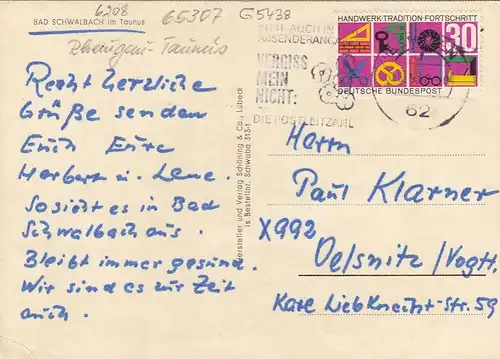 6208
65307
G5438
BAD SCHWALBACH im Taunus
Rheingau-Taunus
Recht herzliche
Grüße senden
Euch Eure
Herbert u. Lene.
So sieht es in Bad
Schwalbach aus.
Bleibt immer gesund.
Wir sind es zur Zeit
auch.
Hersteller und Verlag Schöning & Co., Lübeck
is Bestellnr. Schwalba 313-1
BITTE AUCH IN
ABSENDERANGA
VERGISS
MEIN
NICHT:
DIE POSTLEITZAHL
62
HANDWERK·TRADITION·FORTSCHRITT
30
DEUTSCHE BUNDESPOST
Herrn
Paul Klarner
X992
Oelsnitz/Vogtl.
Karl Liebknecht-Str. 59